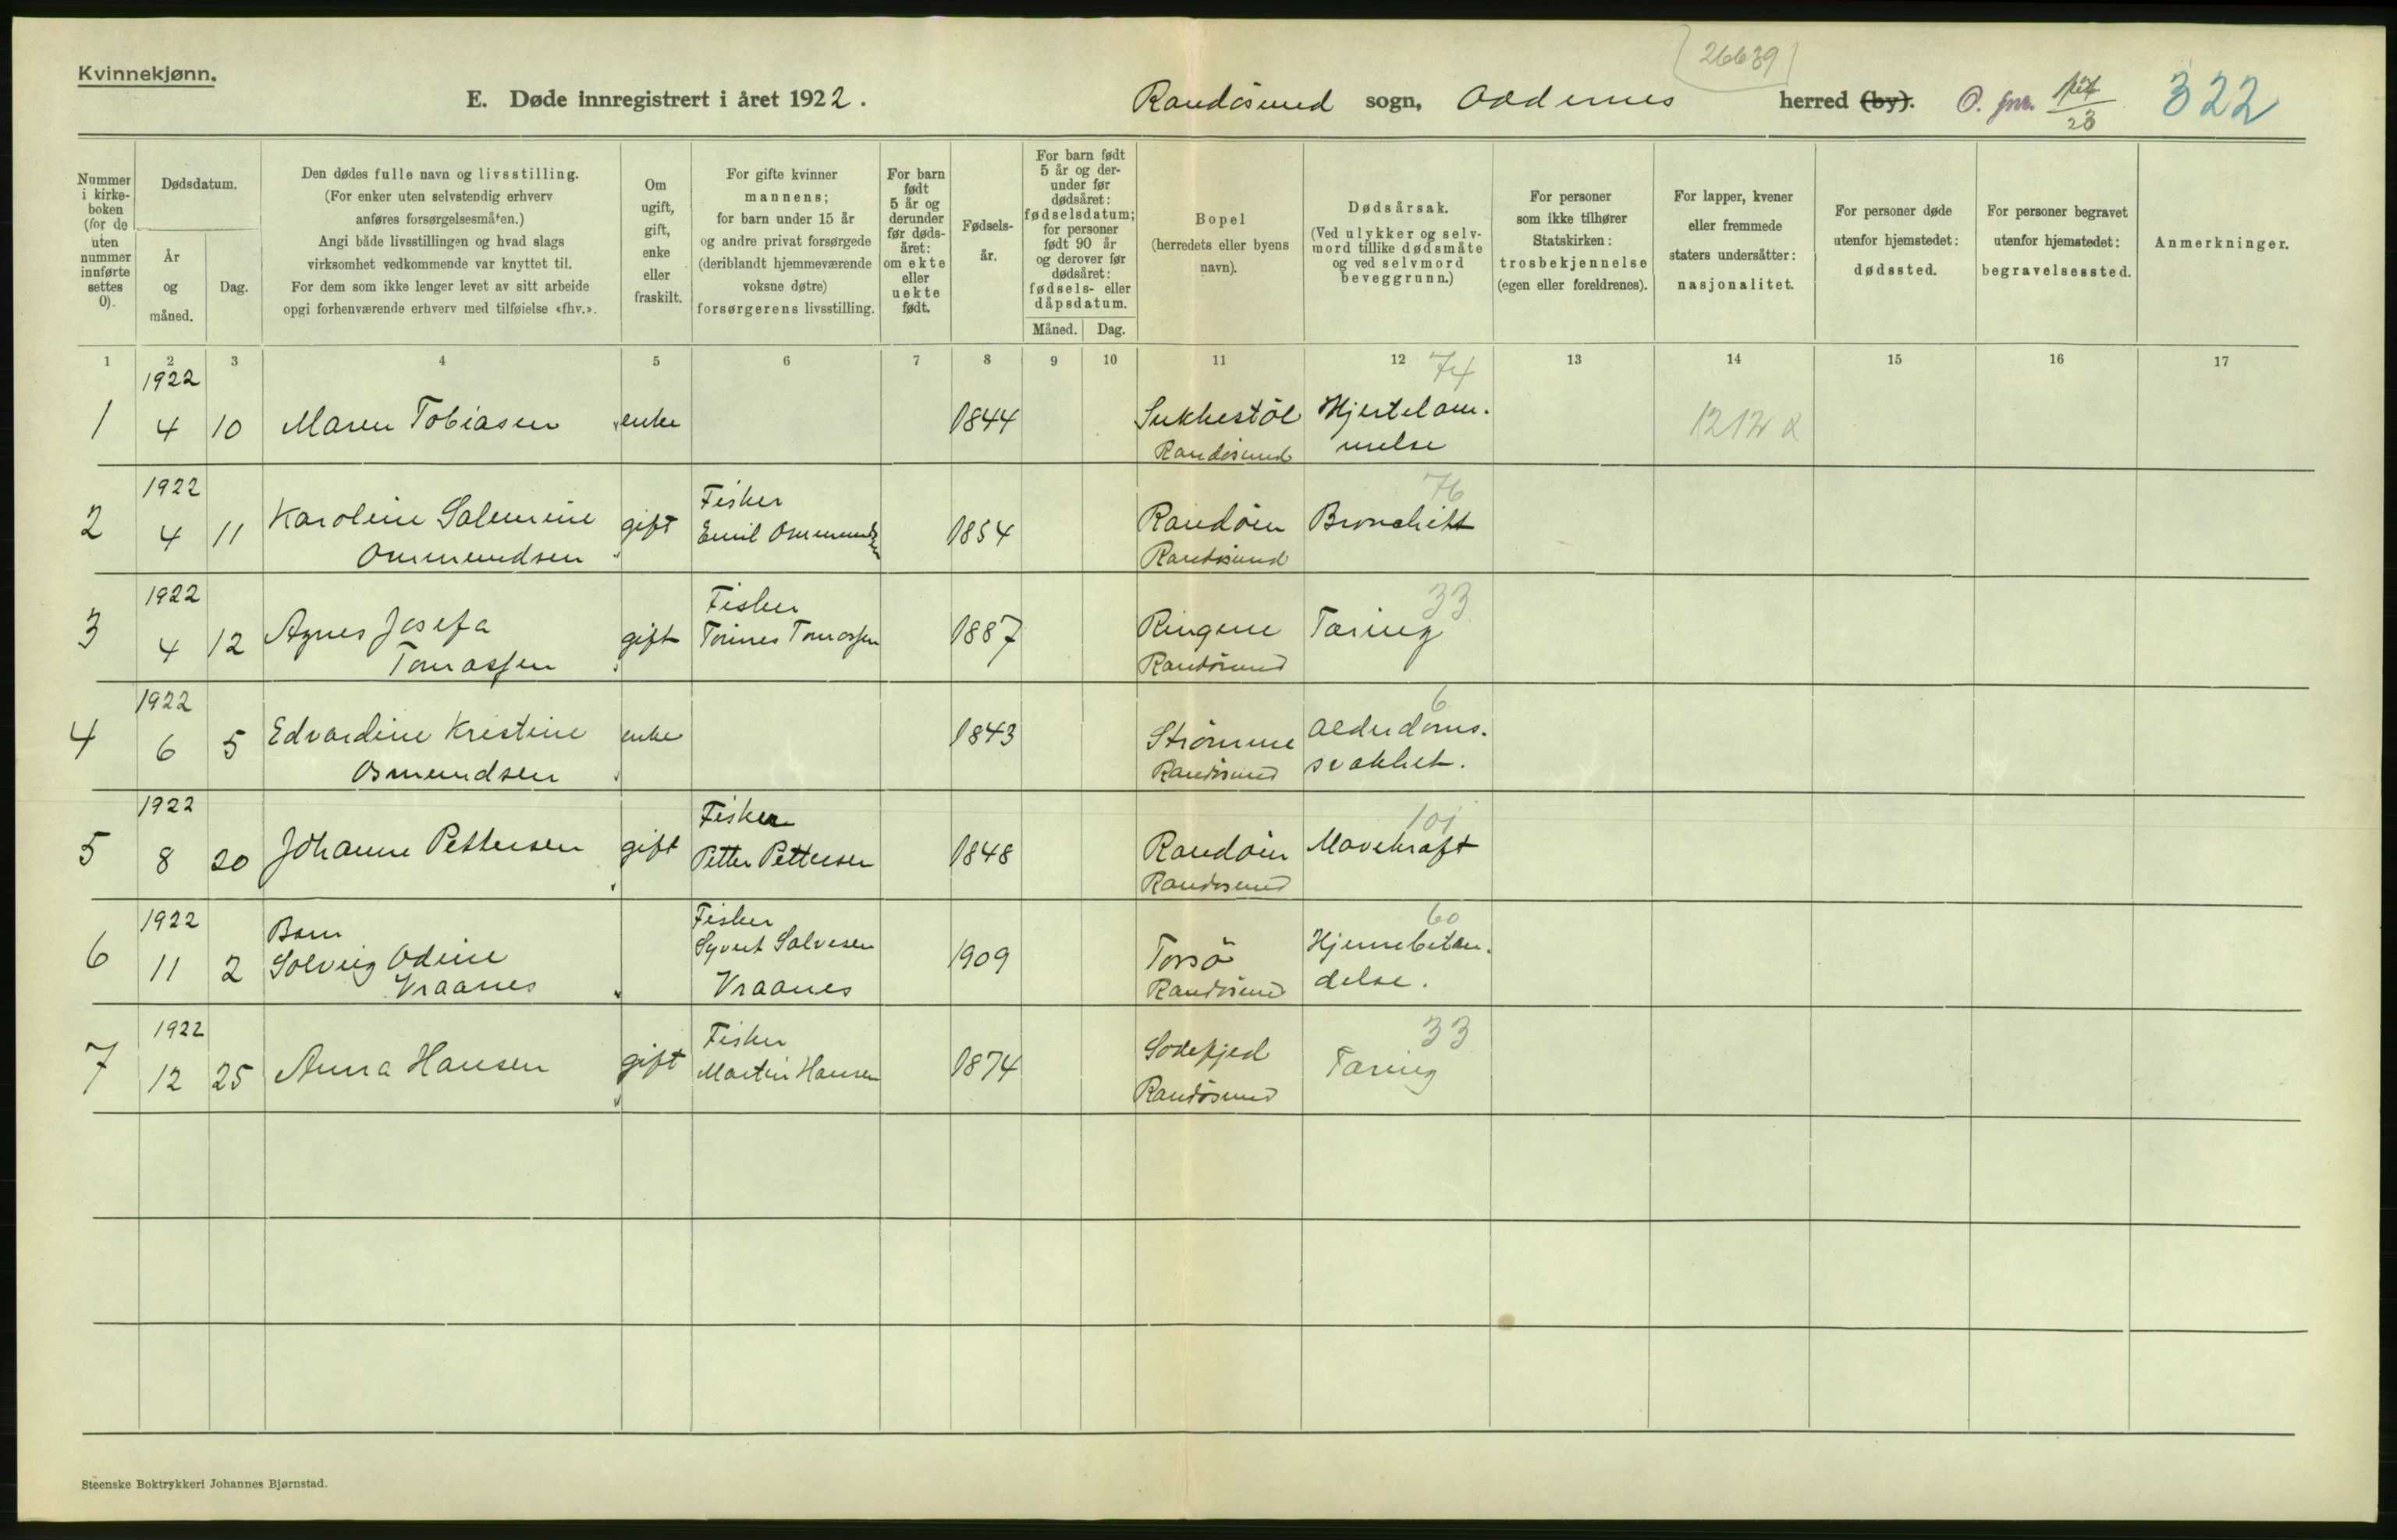 Kvinnekjønn.
26639
E. Døde innregistrert i året 1922.
Randøsund sogn, Oddernes herred (by). 322
Nummer i kirke-boken (for de uten nummer innførte settes 0).
Dødsdatum.
År og måned.
Dag.
Den dødes fulle navn og livsstilling.
(For enker uten selvstendig erhverv
anføres forsørgelsesmåten.)
Angi både livsstillingen og hvad slags
virksomhet vedkommende var knyttet til.
For dem som ikke lenger levet av sitt arbeide
opgi forhenværende erhverv med tilføielse «fhv.».
Om
ugift,
gift,
enke
eller
fraskilt.
For gifte kvinner
mannens;
for barn under 15 år
og andre privat forsørgede
(deriblandt hjemmeværende
voksne døtre)
forsørgerens livsstilling.
For barn
født
5 år og
derunder
før døds-
året:
om ekte
eller
uekte
født.
Fødsels-
år.
For barn født
5 år og der-
under før
dødsåret:
fødselsdatum;
for personer
født 90 år
og derover før
dødsåret:
fødsels- eller
dåpsdatum.
Måned. Dag.
Bopel
(herredets eller byens
navn).
Dødsårsak.
(Ved ulykker og selv-
mord tillike dødsmåte
og ved selvmord
beveggrunn.)
For personer
som ikke tilhører
Statskirken:
trosbekjennelse
(egen eller foreldrenes).
For lapper, kvener
eller fremmede
staters undersåtter:
nasjonalitet.
For personer døde
utenfor hjemstedet:
dødssted.
For personer begravet
utenfor hjemstedet:
begravelsessted.
Anmerkninger.
1 2 3 4 5 6 7 8 9 10 11 12 13 14 15 16 17
1922 74
1 4 10 Maren Tobiasen enke 1844 Sukkestøl Hjertelam-
Randøsund melse
1922 Fisker 76
2 4 11 Karoline Salemine gift Emil Ommundsen 1854 Randøen Bronchitt
Ommundsen Randøsund
1922 Fisker 33
3 4 12 Agnes Josefa gift Tønnes Tomassen 1887 Ringene Tæring
Tomassen Randøsund
1922 6
4 6 5 Edvardine Kristine enke 1843 Strømme Alderdoms-
Osmundsen Randøsund svakhet.
1922 Fisker 101
5 8 20 Johanne Pettersen gift Petter Pettersen 1848 Randøen Mavekræft
Randøsund
1922 Barn Fisker 60
6 11 2 Solveig Odine Syvert Salvesen 1909 Torsø Hjernebeten-
Vraanes Vraanes Randøsund delse.
1922 Fisker 33
7 12 25 Anna Hansen gift Martin Hansen 1874 Sodefjed Tæring
Randøsund
Steenske Boktrykkeri Johannes Bjørnstad.